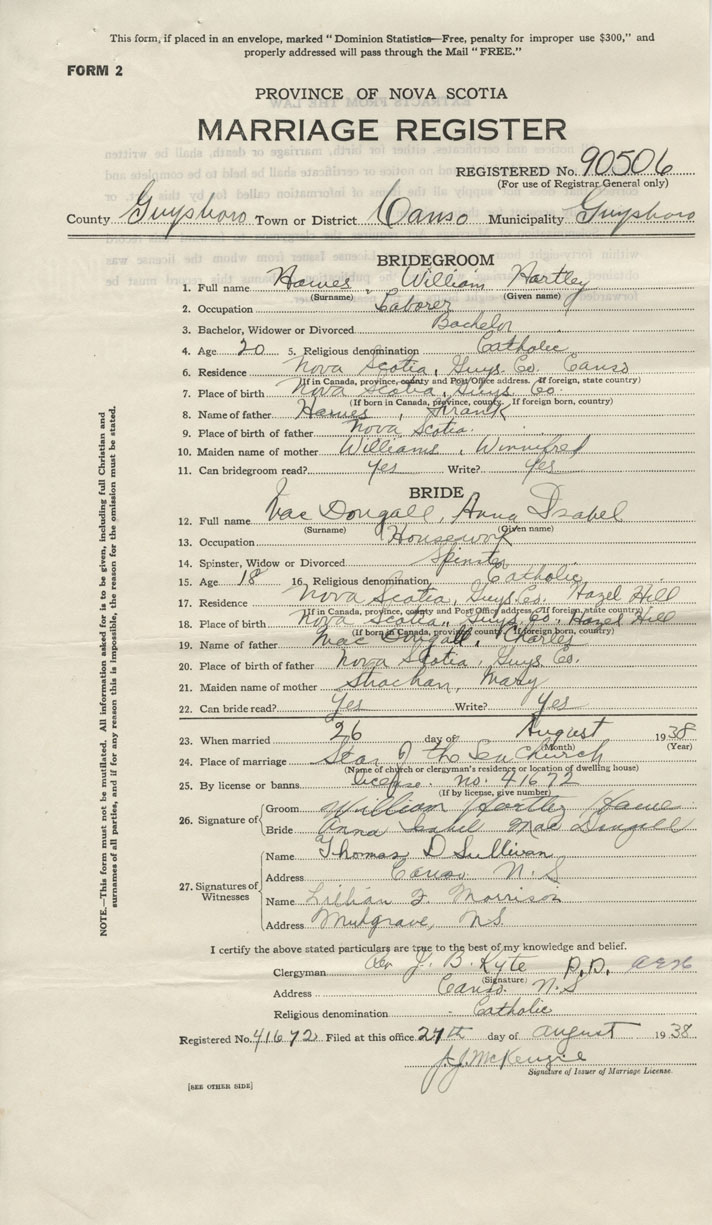 This form, if placed in an envelope, marked "Dominion Statistics—Free, penalty for improper use $300," and
properly addressed will pass through the Mail "FREE."
FORM 2
PROVINCE OF NOVA SCOTIA
MARRIAGE REGISTER
REGISTERED No. 90506
(For use of Registrar General only)
County Guysboro Town or District Canso Municipality Guysboro
BRIDEGROOM
1. Full name Hawes, William Hartley
(Surname) (Given name)
2. Occupation Laborer
3. Bachelor, Widower or Divorced Bachelor
4. Age 20 5. Religious denomination Catholic
6. Residence Nova Scotia, Guys. Co. Canso
(If in Canada, province, county and Post Office address. If foreign, state country)
7. Place of birth Nova Scotia, Guys. Co.
(If born in Canada, province, county. If foreign born, country)
8. Name of father Hawes, Frank
9. Place of birth of father Nova Scotia.
10. Maiden name of mother Williams, Winnifred
11. Can bridegroom read? Yes Write? Yes
BRIDE
12. Full name Mac Dougall, Anna Isabel
(Surname) (Given name)
13. Occupation Housework
14. Spinster, Widow or Divorced Spinster
15. Age 18 16. Religious denomination Catholic
17. Residence Nova Scotia, Guys. Co. Hazel Hill
(If in Canada, province, county and Post Office address. If foreign, state country)
18. Place of birth Nova Scotia, Guys. Co. Hazel Hill
(If born in Canada, province, county. If foreign born, country)
19. Name of father Mac Dougall, Charles
20. Place of birth of father Nova Scotia, Guys. Co.
21. Maiden name of mother Strachan, Mary
22. Can bride read? Yes Write? Yes
23. When married 26 day of August 1938
(Month) (Year)
24. Place of marriage Star of the Sea Church
(Name of church or clergyman's residence or location of dwelling house)
25. By license or banns license no. 41672
(If by license, give number)
26. Signature of Groom William Hartley Hawes
Bride Anna Isabel Mac Dougall
27. Signatures of Witnesses Name Thomas D Sullivan
Address Canso N.S
Name Lillian F. Morrison
Address Mulgrave, N.S.
I certify the above stated particulars are true to the best of my knowledge and belief.
Clergyman Rev J. B. Kyte P.P.
(Signature)
Address Canso. N.S
Religious denomination Catholic
Registered No. 41672 Filed at this office 27th day of August 1938
J.J. McKenzie
Signature of Issuer of Marriage License.
[SEE OTHER SIDE]
NOTE.—This form must not be mutilated. All information asked for is to be given, including full Christian and
surnames of all parties, and if for any reason this is impossible, the reason for the omission must be stated.